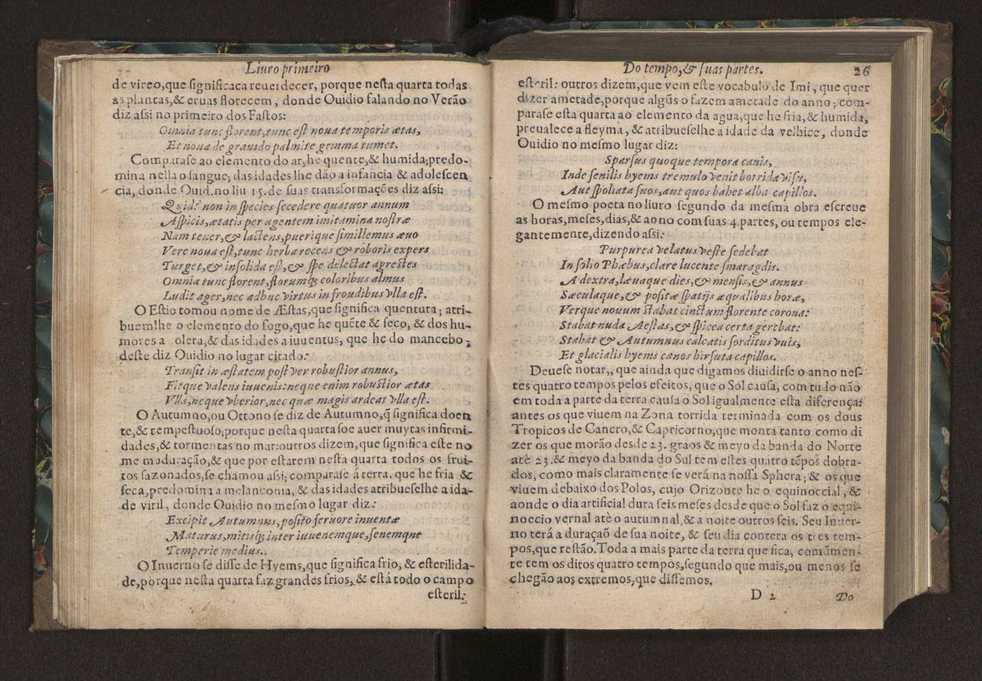 Liuro primeiro
de vireo,que significaca reuerdecer, porque nesta quarta todas
as plantas,& eruas florecem, donde Ouidio falando no Verão
diz assi no primeiro dos Fastos:
Omnia tunc florent,tunc est noua temporis ætas,
Et noua de grauido palmite gemma tumet.
Comparase ao elemento do ar,he quente,& humida;predo-
mina nella o sangue; das idades lhe dão a infancia & adolescen
cia, donde Ouid.no liu 15.de suas transformações diz assi:
Quid? non in species secedere quatuor annum
Aspicis,ætatis per agentem imitamina nostræ
Nam tener,& lactens,puerique simillemus æuo
Vere nouo est,tunc herba recens & roboris expers
Turget,& insolida est,& spe delectat agrestes
Omnia tunc florent,florumq; coloribus almus
Ludit ager,nec adhuc virtus in frondibus vlla est.
O Estio tomou nome de Æstas,que significa quentura; atri-
buemlhe o elemento do fogo,que he quẽte & seco, & dos hu-
mores a olera,& das idades a iuuentus, que he do mancebo,
deste diz Ouidio no lugar citado:
Transit in æstatem post ver robustior annus,
Fitque valens iuuenis:neque enim robustior ætas
Vlla,neque vberior,nec quæ magis ardeat vlla est.
O Autumno,ou Ottono se diz de Autumno,q̃ significa doen
te,& tempestuoso,porque nesta quarta soe auer muytas infirmi-
dades,& tormentas no mar:outros dizem,que significa este no
me maduração,& que por estarem nesta quarta todos os frui-
tos sazonados,se chamou assi; comparase á terra. que he fria &
seca,predomina a melanconia, & das idades atribueselhe a ida-
de viril, donde Ouidio no mesmo lugar diz:
Excipit Autumnus,posito feruore inuentæ
Maturus,mitisq; inter iuuenemque,senemque
Temperie medius..
O Inuerno se disse de Hyems,que significa frio, & esterilida-
de,porque nesta quarta faz grandes frios, & está todo o campo
esteril:
Do tempo,& suas partes. 26
esteril: outros dizem,que vem este vocabulo de Imi, que quer
dizer ametade,porque algũs o fazem ametade do anno; com-
parase esta quarta ao elemento da agua,que he fria,& humida,
preualece a fleyma, & atribueselhe a idade da velhice, donde
Ouidio no mesmo lugar diz:
Sparsus quoque tempora canis,
Inde senilis hyems tremulo venit horrida visu,
Aut spoliata suos,aut quos habet alba capillos.
O mesmo poeta no liuro segundo da mesma obra escreue
as horas,meses,dias,& ao no com suas 4.partes, ou tempos ele-
gantemente,dizendo assi:
Purpurea velatus veste sedebat
In solio Phœbus,clare lucente smaragdis.
A dextra,læuaque dies,& mensis,& annus
Sæculaque,& positæ spatijs æqualibus horæ,
Verque nouum stabat cinctum florente corona:
Stabat nuda Aestas,& spicea certa gerebat:
Stabat & Autumnus calcatis sorditus vuis,
Et glacialis hyems canos hirsuta capillos.
Deuese notar,, que ainda que digamos diuidirse o anno nes-
tes quatro tempos pelos efeitos, que o Sol causa, com tudo não
em toda a parte da terra causa o Sol igualmente esta diferença:
antes os que viuem na Zona torrida terminada com os dous
Tropicos de Cancro,& Capricorno,que monta tanto como di
zer os que morão desde 23. graos & meyo da banda do Norte
até 23.& meyo da banda do Sul tem estes quatro tẽpos dobra-
dos, como mais claramente se verá na nossa Sphera; & os que
viuem debaixo dos Polos, cujo Orizonte he o equinoccial, &
aonde o dia artificial dura seis meses desde que o Sol faz o equi-
noccio vernal até o autumnal,& a noite outros seis. Seu Inuer-
no terá a duração de sua noite, & seu dia contera os tres tem-
pos,que restão.Toda a mais parte da terra que fica, comũmen-
te tem os ditos quatro tempos,segundo que mais,ou menos se
chegão aos extremos,que dissemos.
D 2 Do